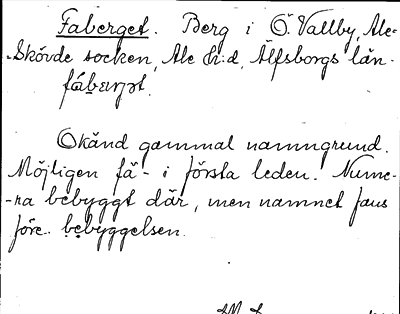 Faberget. Berg i Ö. Vallby, Ale-
-Skövde socken, Ale h:d, Älfsborgs län.

Okänd gammal namngrund.
Möjligen fä- i första leden. Nume-
-ra bebyggt där, men namnet fans
före bebyggelsen.